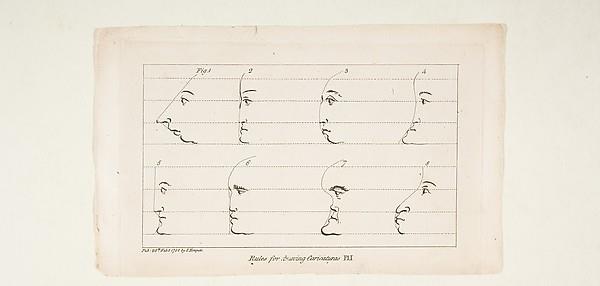 Fig. 1 2 3 4
5 6 7 8
Pub. 28th Febs 1788 by S. Hooper
Rules for drawing Caricaturas Pl. I